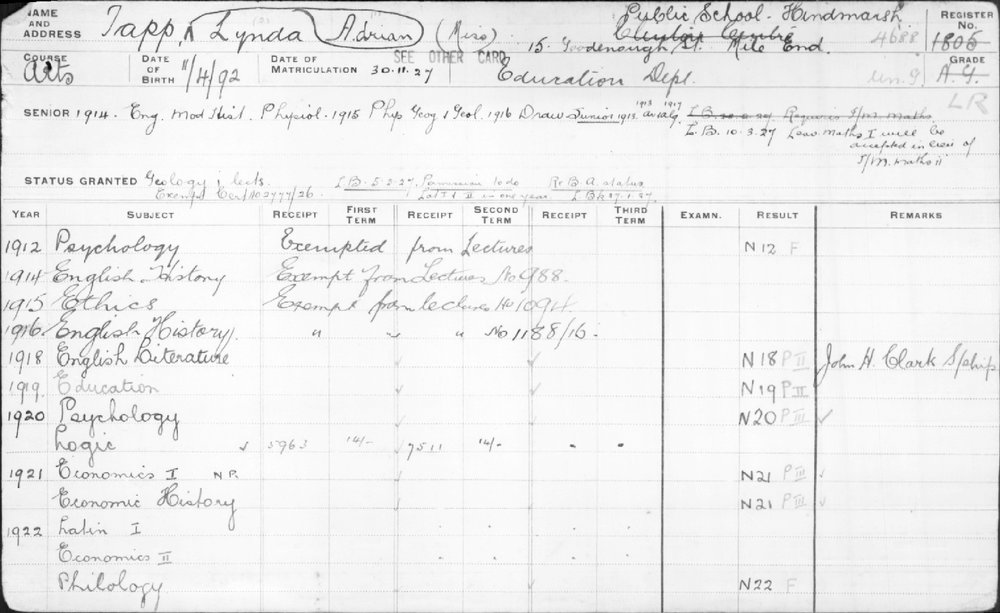 NAME AND ADDRESS Tapp, Lynda (2) Adrian (Miss) Public School - Hindmarsh REGISTER No.
Clinton Centre 4688 1805
15. Goodenough St. Mile End. GRADE
COURSE Arts DATE OF BIRTH 11/4/92 DATE OF MATRICULATION 30.11.27 SEE OTHER CARD Education Dept. Un.G. A.G.
LR
SENIOR 1914. Eng. Mod Hist. Physiol. 1915 Phys Geog & Geol. 1916 Draw Junior 1913 1917 Requires I/M. Maths.
L.B. 10.3.27 Leav. Maths I will be
accepted in lieu of
I/M. Maths ii
STATUS GRANTED Geology i lects. L.B. 5.2.27. Permission to do Re B.A. status
Exempt Cert No 2777/26. Lat I & II in one year
YEAR SUBJECT RECEIPT FIRST TERM RECEIPT SECOND TERM RECEIPT THIRD TERM EXAMN. RESULT REMARKS
1912 Psychology Exempted from Lectures N12 F
1914 English History Exempt from Lectures No 988.
1915 Ethics Exempt from lectures No 1094
1916. English History. " " " No 1188/16 -
1918 English Literature ✓ ✓ N18 P II John H. Clark S/ship
1919. Education ✓ ✓ N19 P II
1920 Psychology ✓ ✓ N20 P III ✓
Logic ✓ 5963 14/- ✓ 7511 14/- " "
1921 Economics I N.R. ✓ ✓ N21 P III ✓
Economic History ✓ ✓ N21 P III ✓
1922 Latin I
Economics II
Philology N22 F